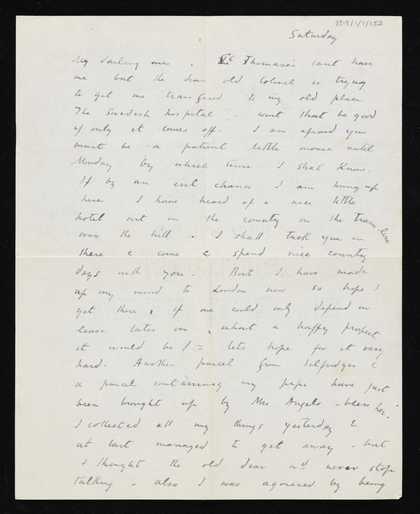 Saturday
My darling one. St Thomas's cant have
me but the dear old Colonel is trying
to get me transferred to my old place
The Swedish hospital. wont that be good
if only it comes off. I am afraid you
must be a patient little mouse until
Monday by which time I shall know.
If by an evil chance I am hung up
here I have heard of a nice little
hotel out in the country on the tram line
over the hill & I shall tuck you in
there & come & spend nice country
days with you. But I have made
up my mind to London now so hope I
get there & if one could only depend on
leave later on, what a happy prospect
it would be! = lets hope for it very
hard. Another parcel from Selfridges &
a parcel containing my pipe have just
been brought up by Mrs Angelo - bless her.
I collected all my things yesterday &
at last managed to get away - but
I thought the old dear wd never stop
talking - also I was agonised by being